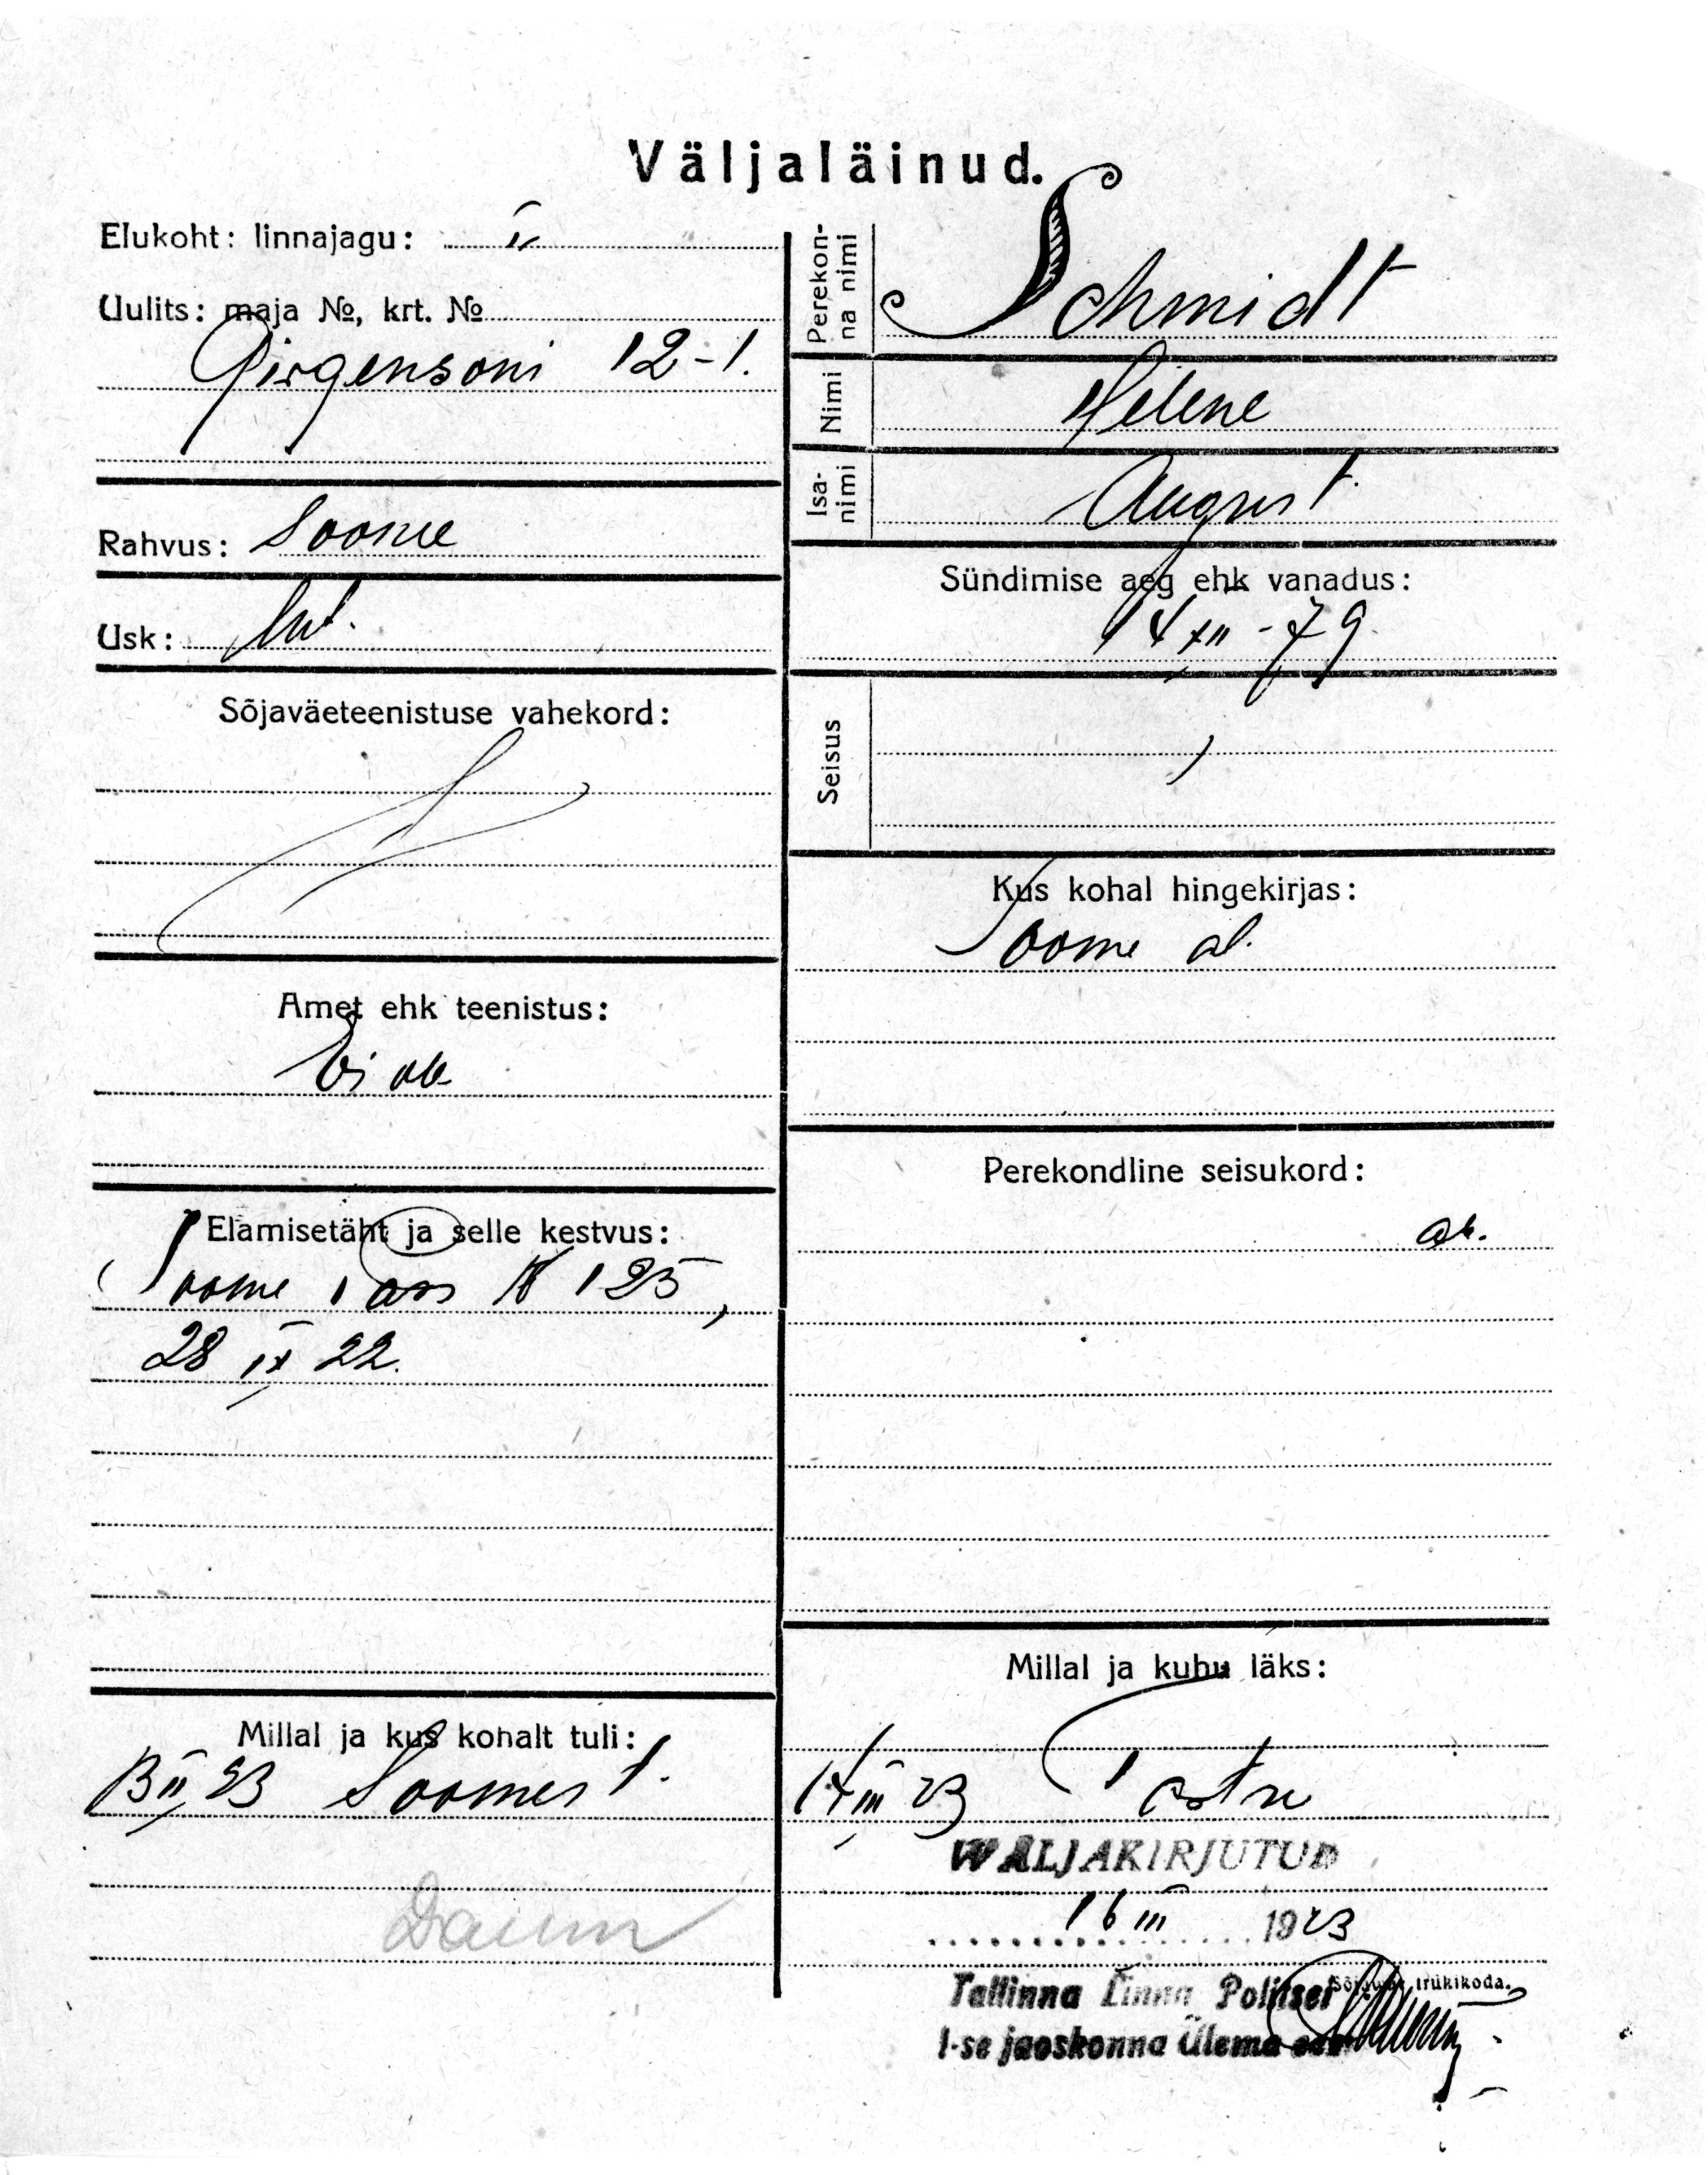 Väljaläinud.
Elukoht: linnajagu: II
Uulits: maja №, krt. №
Girgensoni 12-1.
Rahvus: Soome
Usk: lut.
Sõjaväeteenistuse vahekord:
Amet ehk teenistus:
Ei ole
Elamisetäht ja selle kestvus:
Soome pass № 125,
28 IX 22.
Millal ja kus kohalt tuli:
13 II 23 Soomest.
Perekon-
na nimi
Schmidt
Nimi
Helene
Isa-
nimi
August.
Sündimise aeg ehk vanadus:
14 XII - 79.
Seisus
Kus kohal hingekirjas:
Soome al.
Perekondline seisukord:
ab.
Millal ja kuhu läks:
14 III 23
WÄLJAKIRJUTUD
16 III 1923
Tallinna Linna Politsei
trükikoda.
I-se jaoskonna Ülema